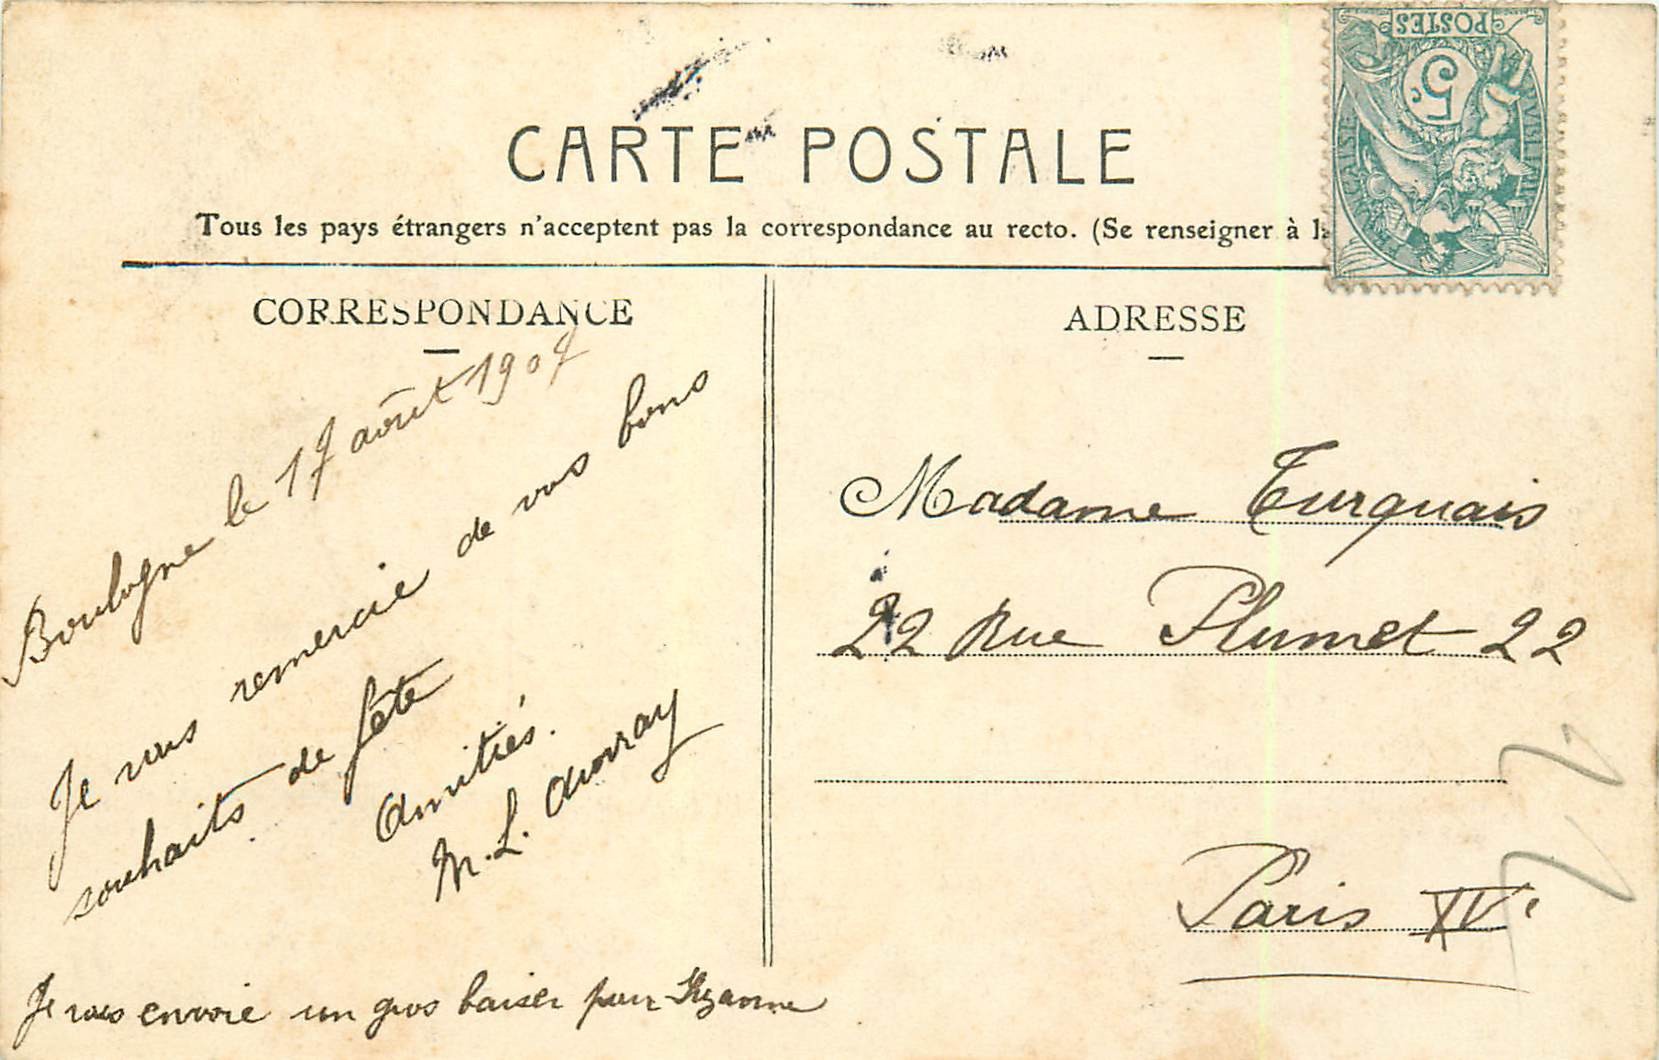 CARTE POSTALE
Tous les pays étrangers n'acceptent pas la correspondance au recto. (Se renseigner à la
CORRESPONDANCE
Boulogne le 17 août 1907
Je vous remercie de vos bons
souhaits de fête
Amitiés.
M. L. Auvray
Je vous envoie un gros baiser pour Suzanne
POSTES
5c
ADRESSE
Madame Turquais
22 Rue Plumet 22
Paris XVe